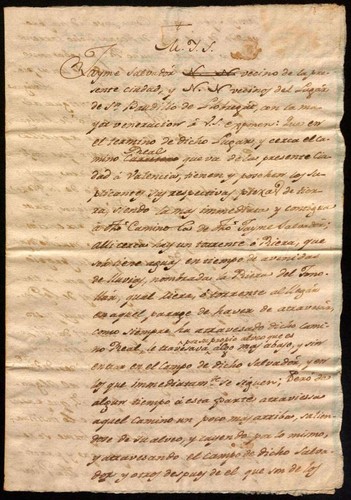 M. Y. S.
Jayme Salvadó N. N. vecino de la pre-
sente ciudad, y N. N vecinos del Lugar
de Sn. Baudilio de Llobregat, con la ma-
yor veneracion à V.S. exponen: Que en
el termino de dicho Lugar, y cerca el ca-
mino Real que va de la presente Ciu-
dad à Valencia, tienen y posehen los su-
plicantes sus respectivas piezas de tier-
ra, siendo la mas immediata y contigua
à dho. Camino la de dho. Jayme Salvadó;
alli cerca hay un torrente ò Riera, que
solo tiene agua en tiempo de avenidas
de lluvias, nombrada la Riera del
qual Riera, ò torrente al llegar
en aquel parage de haver de atravesar,
como siempre ha atravesado dicho Cami-
no Real, le atravesava algo mas abajo, y sin
por su propio alveo que es
entrar en el campo de dicho Salvadó, y en
los que immediatamte. se siguen; Pero de
algun tiempo à esta parte atraviesa
aquel Camino un poco mas arriba, salien-
dose de su alveo, y cayendo por lo mismo,
y atravesando el campo de dicho Salva-
dor, y otros despues de el que son de los